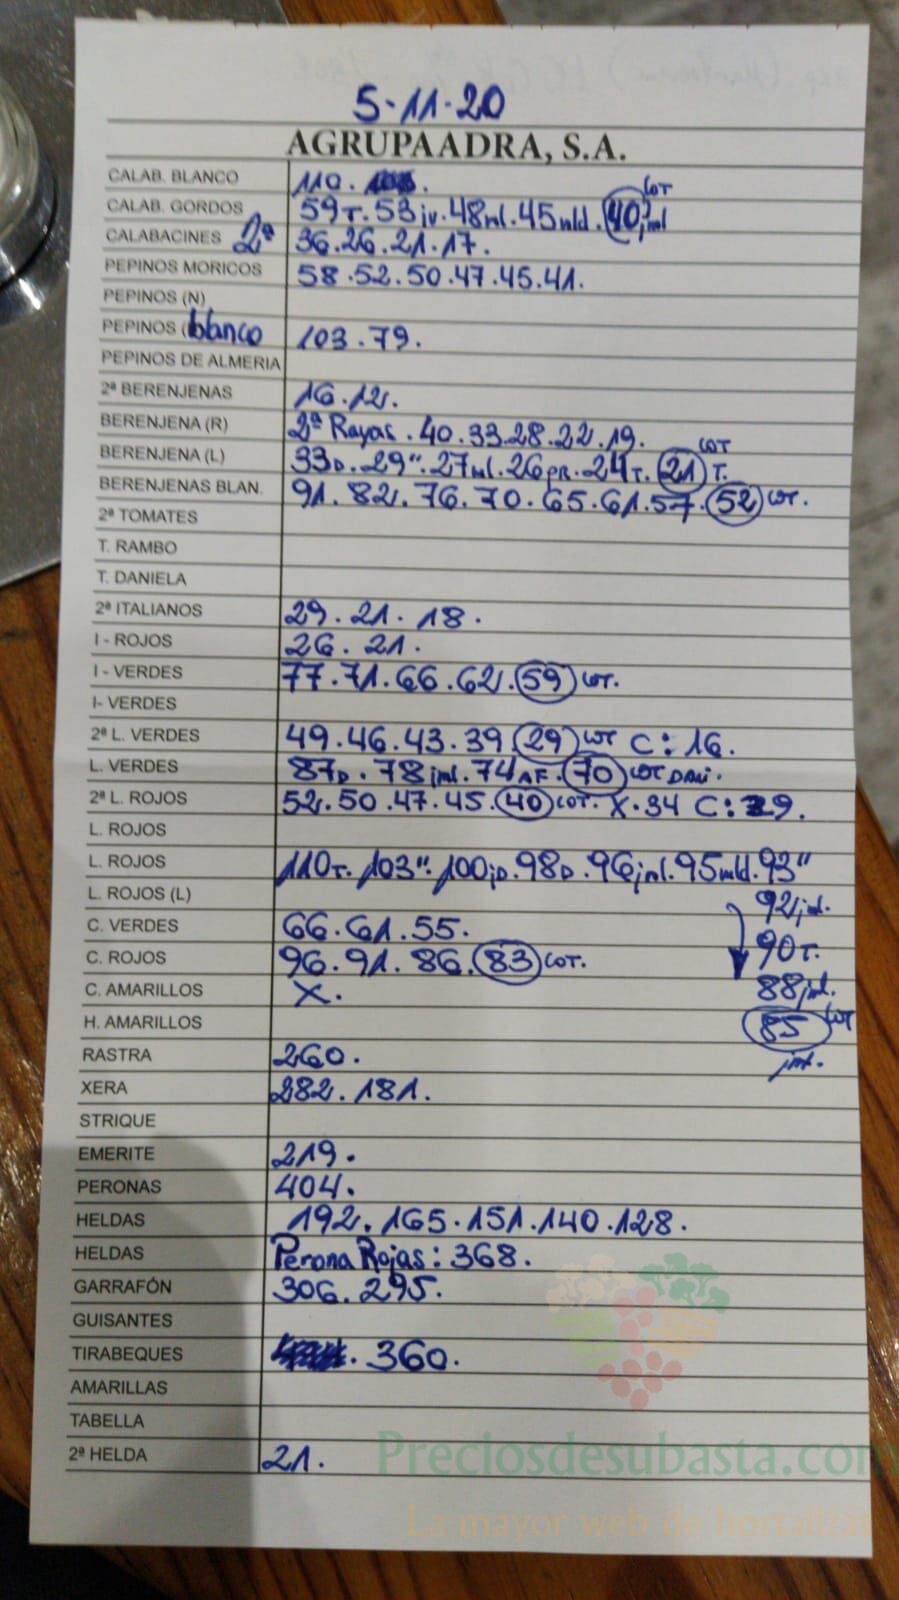 5-11-20
AGRUPAADRA, S.A.
CALAB. BLANCO 110.
CALAB. GORDOS 59T. 53jv. 48ml. 45mld. 40 COT jml
CALABACINES 2ª 36. 26. 21. 17.
PEPINOS MORICOS 58. 52. 50. 47. 45. 41.
PEPINOS (N)
PEPINOS ( blanco 103. 79.
PEPINOS DE ALMERIA
2ª BERENJENAS 16. 12.
BERENJENA (R) 2ª Rayas. 40. 33. 28. 22. 19.
BERENJENA (L) 33D. 29". 27ml. 26PR. 24T. 21 COT T.
BERENJENAS BLAN. 91. 82. 76. 70. 65. 61. 57. 52 COT.
2ª TOMATES
T. RAMBO
T. DANIELA
2ª ITALIANOS 29. 21. 18.
I - ROJOS 26. 21.
I - VERDES 77. 71. 66. 62. 59 COT.
I- VERDES
2ª L. VERDES 49. 46. 43. 39. 29 COT C: 16.
L. VERDES 87D. 78jml. 74AF. 70 COT DANI.
2ª L. ROJOS 52. 50. 47. 45. 40 COT. X. 34 C: 29.
L. ROJOS
L. ROJOS 110T. 103". 100jD. 98D. 96jml. 95mld. 93"
L. ROJOS (L) 92jml.
C. VERDES 66. 61. 55. 90T.
C. ROJOS 96. 91. 86. 83 COT.
C. AMARILLOS X. 88jml.
H. AMARILLOS 85 COT
RASTRA 260. jml.
XERA 282. 181.
STRIQUE
EMERITE 219.
PERONAS 404.
HELDAS 192. 165. 151. 140. 128.
HELDAS Perona Rojas: 368.
GARRAFÓN 306. 295.
GUISANTES
TIRABEQUES 360.
AMARILLAS
TABELLA
2ª HELDA 21.
Preciosdesubasta.com
La mayor web de hortalizas